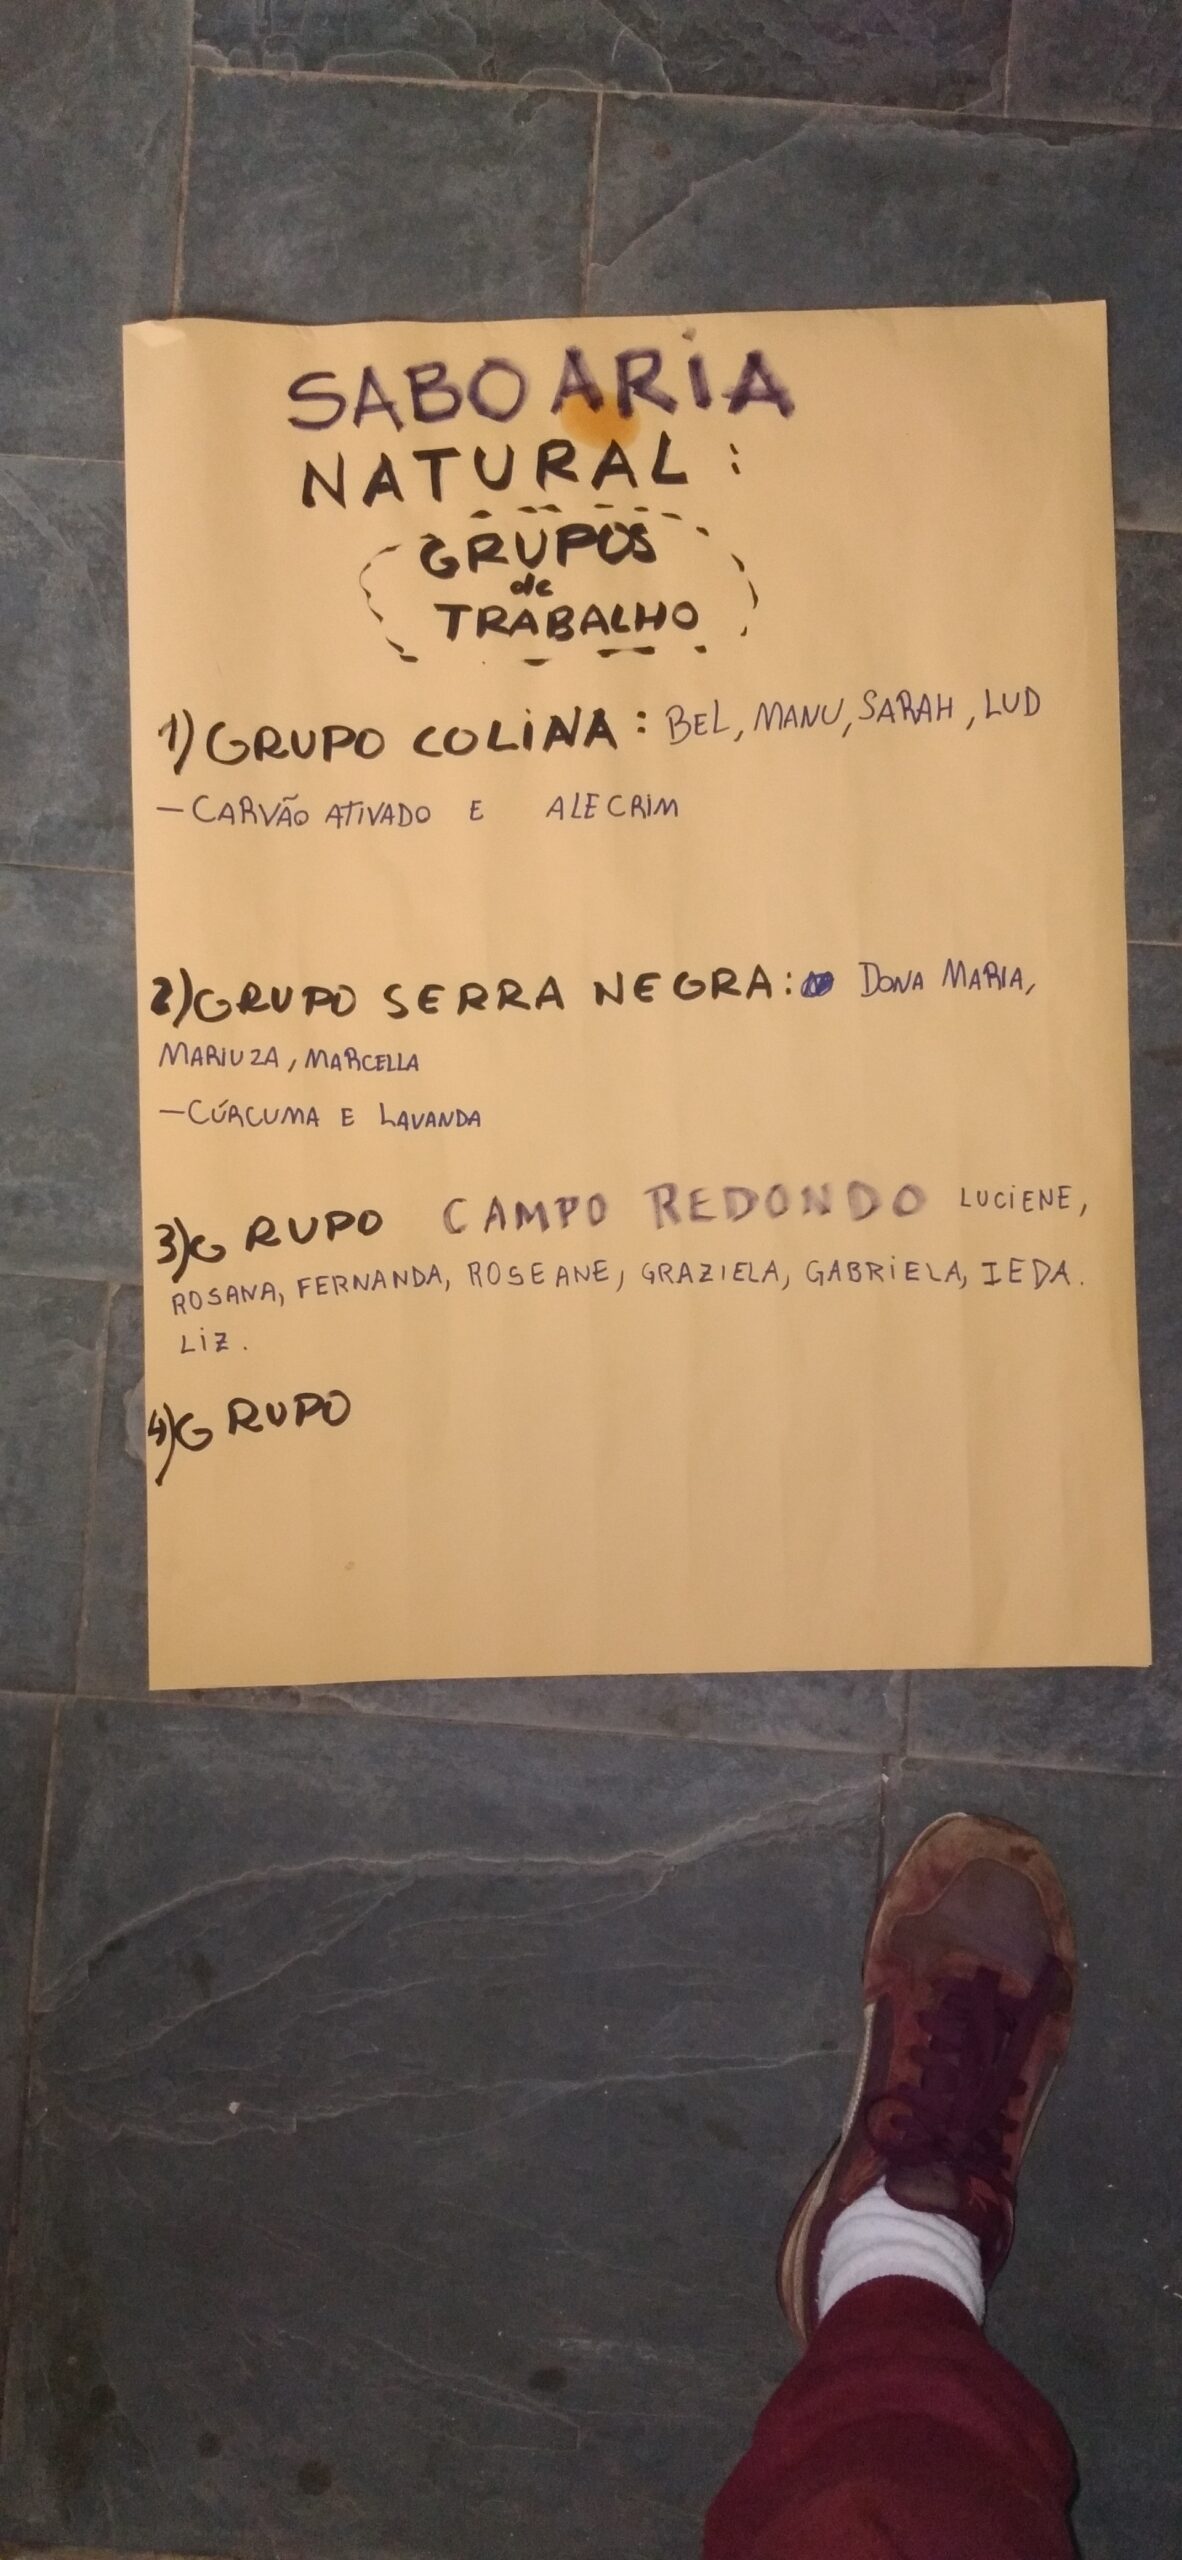 SABOARIA
NATURAL:
GRUPOS
de
TRABALHO
1) GRUPO COLINA: BEL, MANU, SARAH, LUD
- CARVÃO ATIVADO E ALECRIM
2) GRUPO SERRA NEGRA: DONA MARIA,
MARIUZA, MARCELLA
- CÚRCUMA E LAVANDA
3) GRUPO CAMPO REDONDO LUCIENE,
ROSANA, FERNANDA, ROSEANE, GRAZIELA, GABRIELA, IEDA.
LIZ.
4) GRUPO